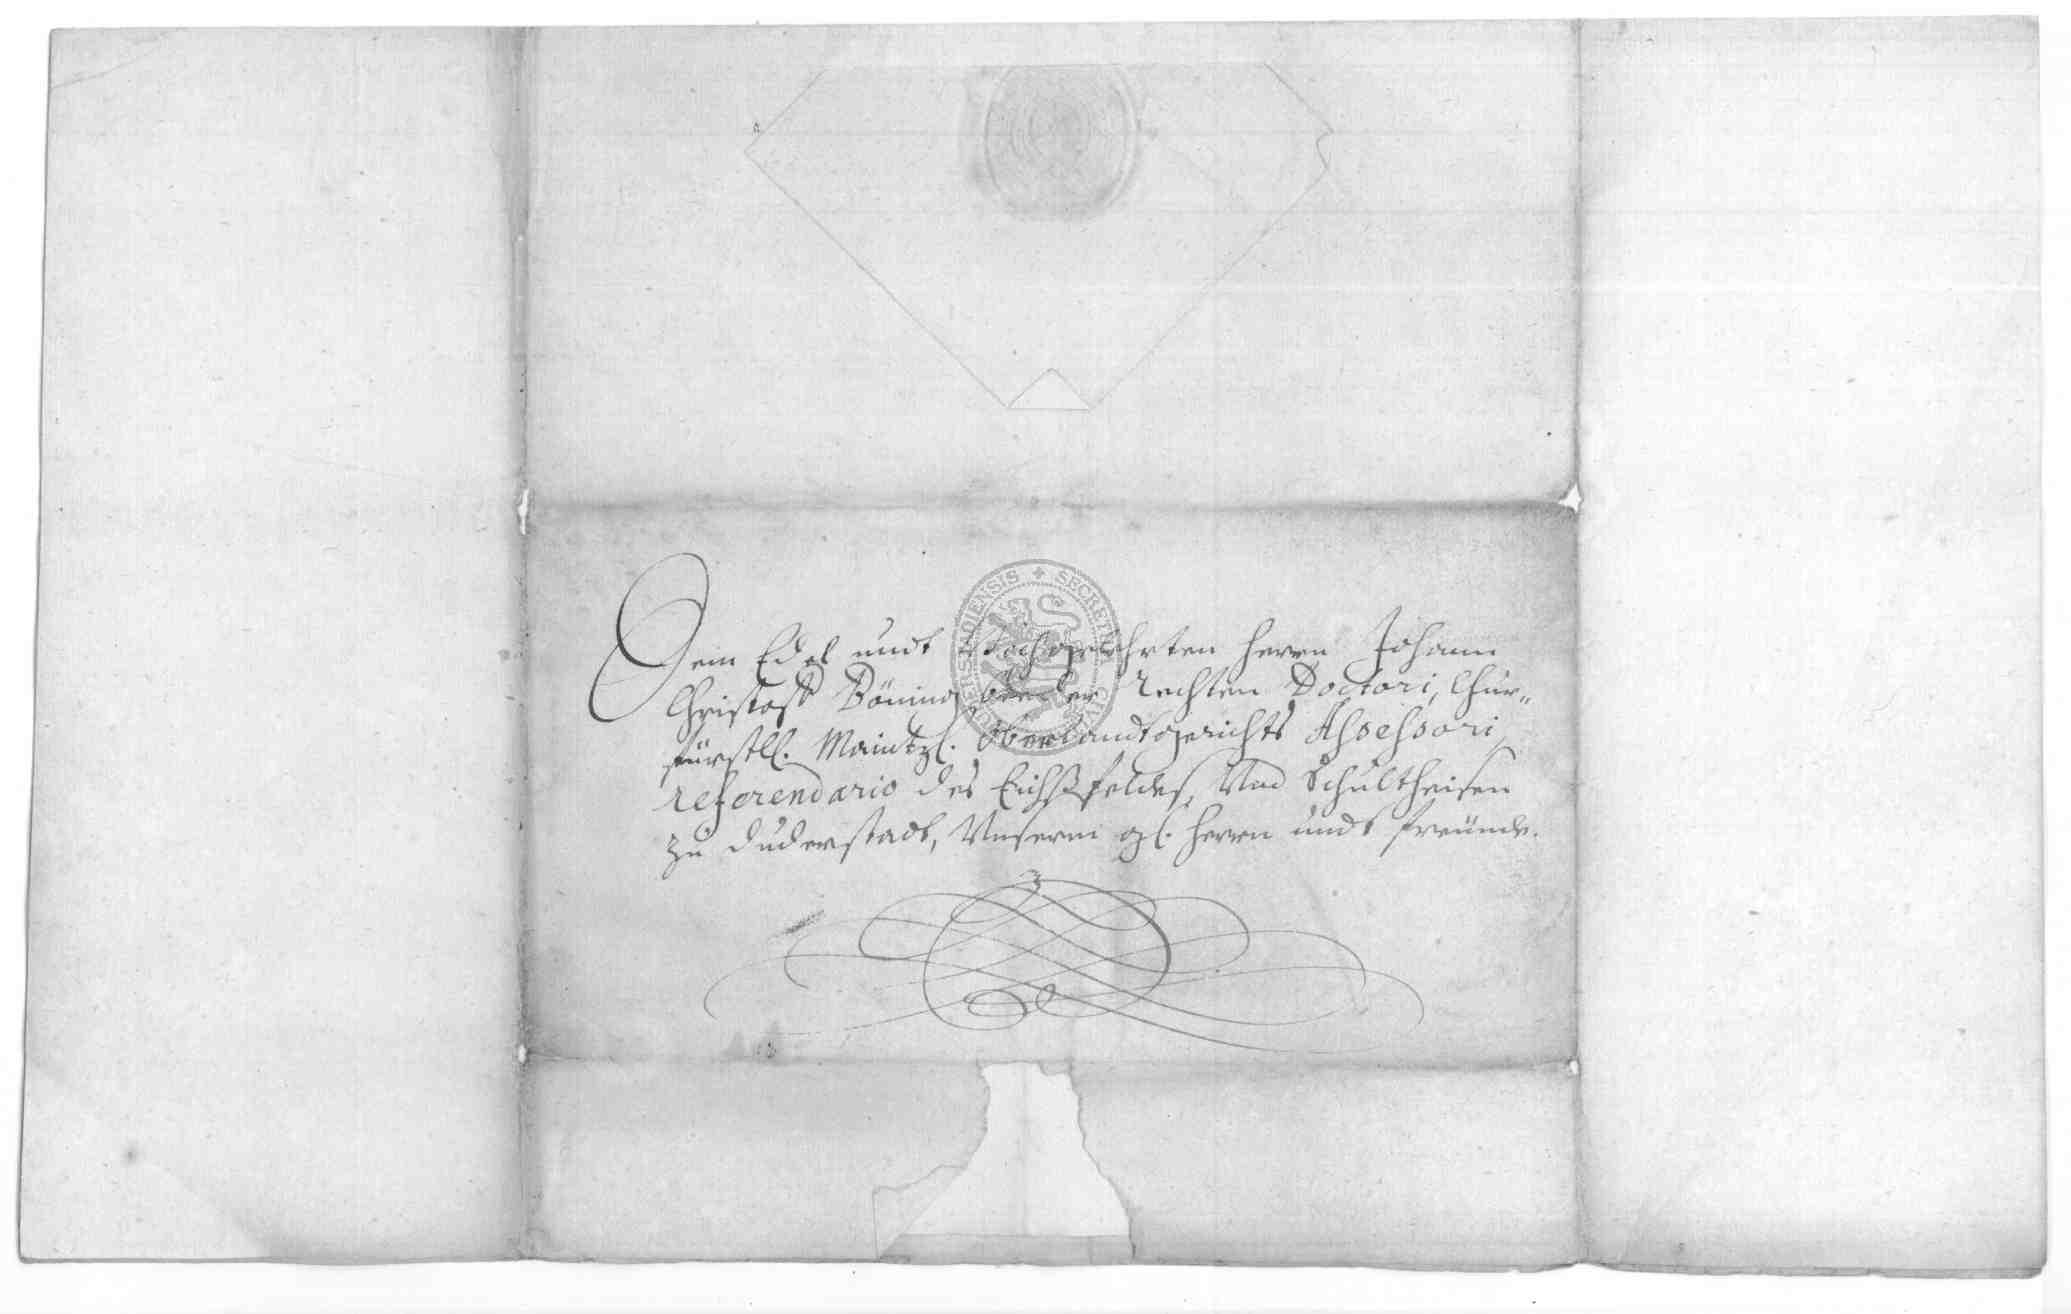 Dem Edel undt Hochgelehrten Herrn Johann
Christoff Böning beeder Rechten Doctori, Chur„
fürstll. Maintzl. Oberlandtgerichts Assessori,
referendario des Eichßfeldes, Vnd Schultheisen
zu Duderstadt, Vnserm gl. Herrn undt freünde.
SECRETVM CIVI DUDERSTADIENSIS